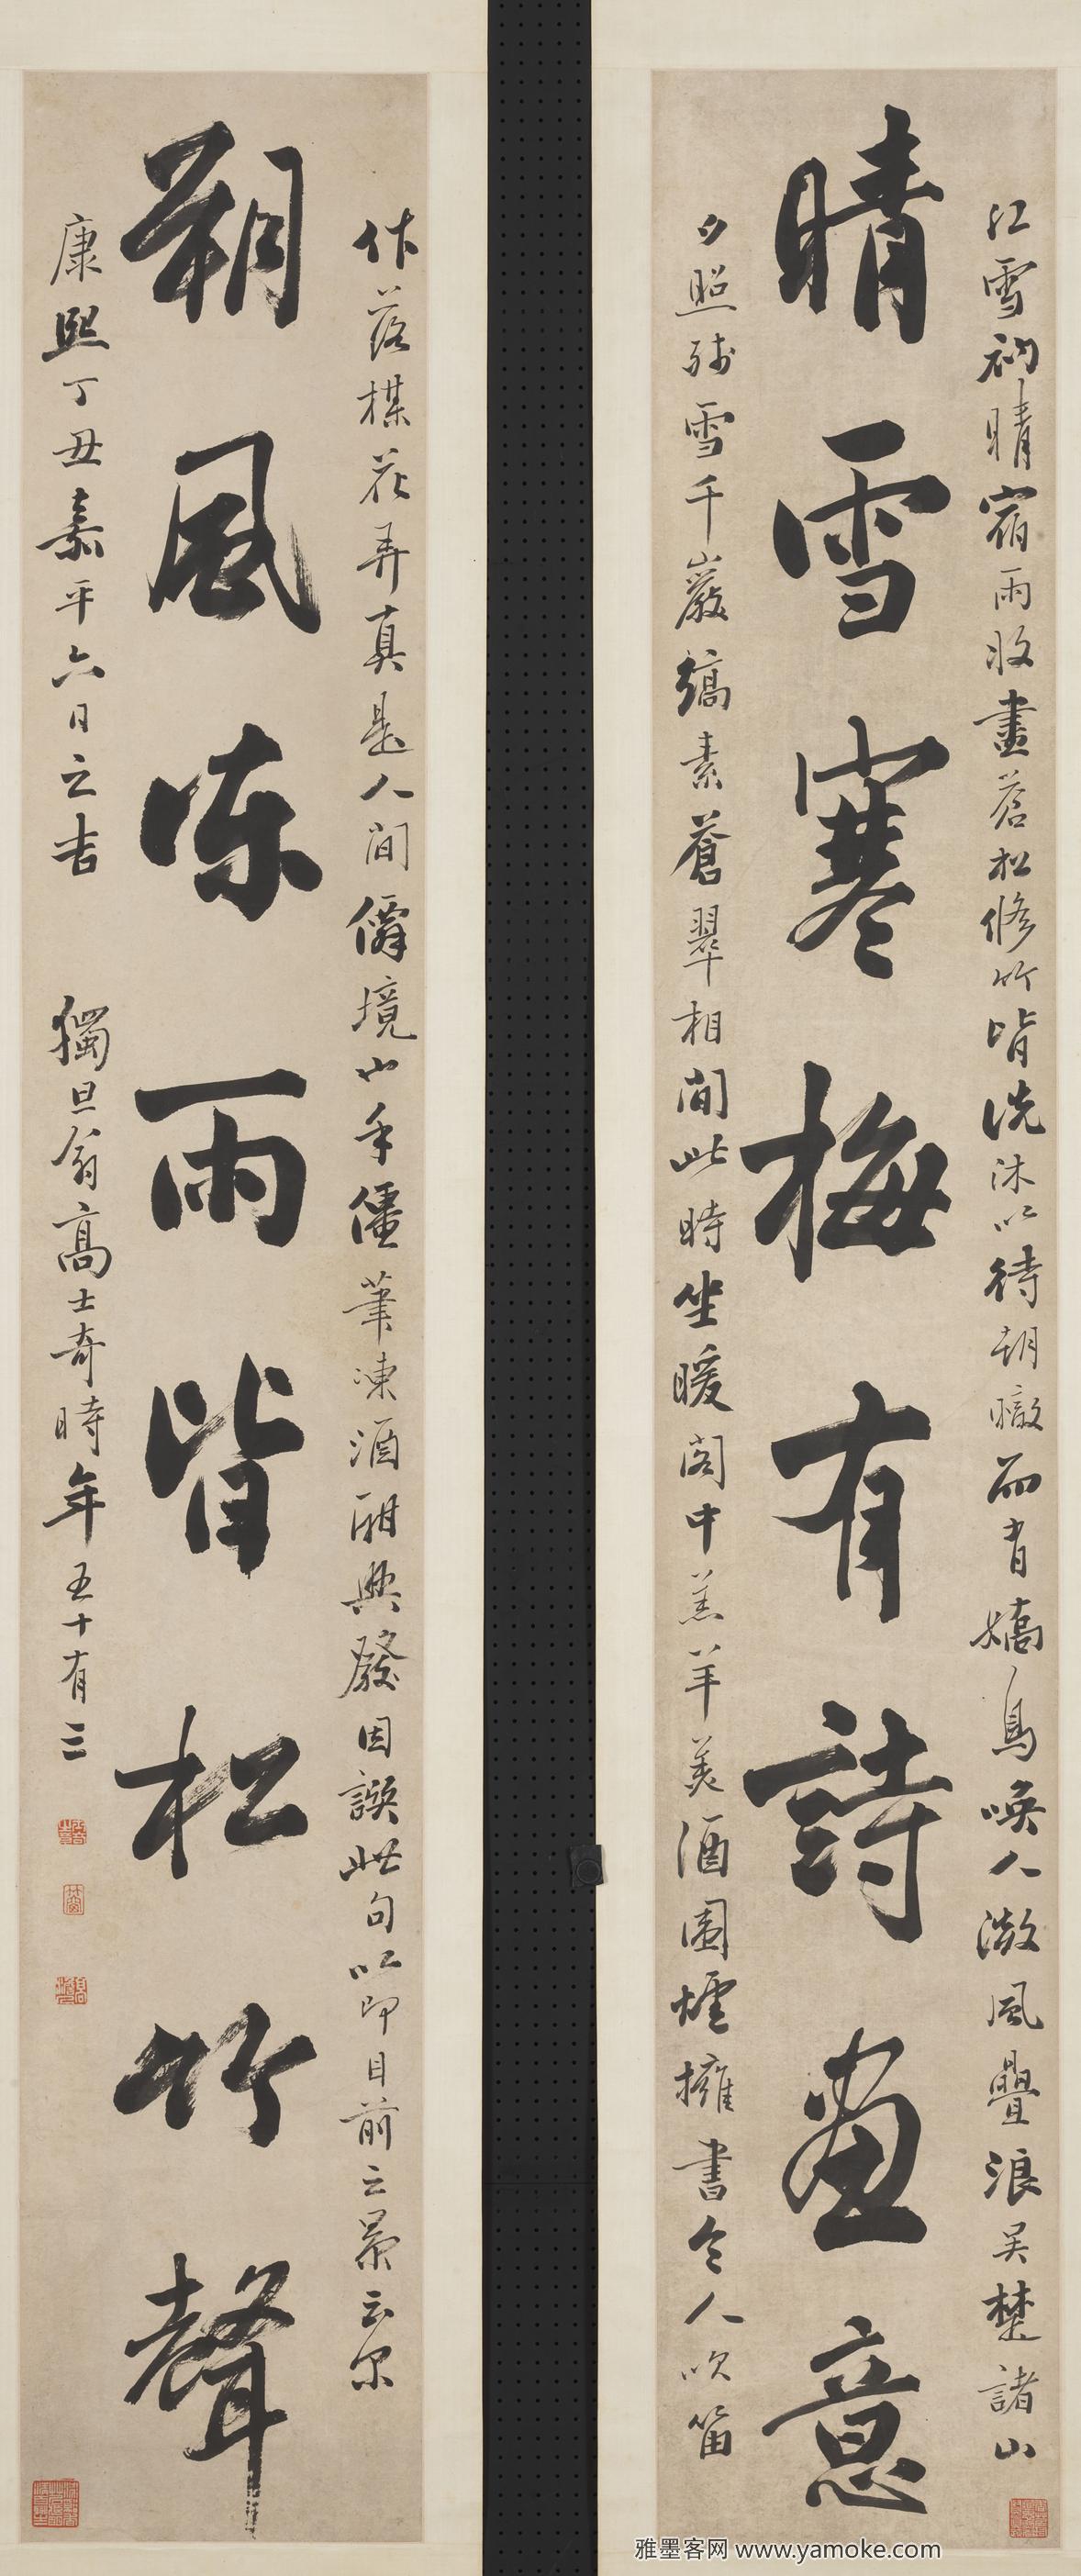 江雪初晴宿雨收畫蒼松修竹皆洗沐以待朝暾而有嬌鳥喚人微風疊浪吳楚諸山
晴雪寒梅有詩畫意
夕照殘雪千巖縞素蒼翠相間此時坐暖閣中羔羊美酒圍爐擁書令人吹笛
作落楳花弄真是人間僻境也手僵筆凍酒酣興發因譔此句以即目前之景云尔
朔風凍雨皆松竹聲
康熙丁丑嘉平六日之吉 獨旦翁高士奇時年五十有三
雅墨客网 www.yamoke.com